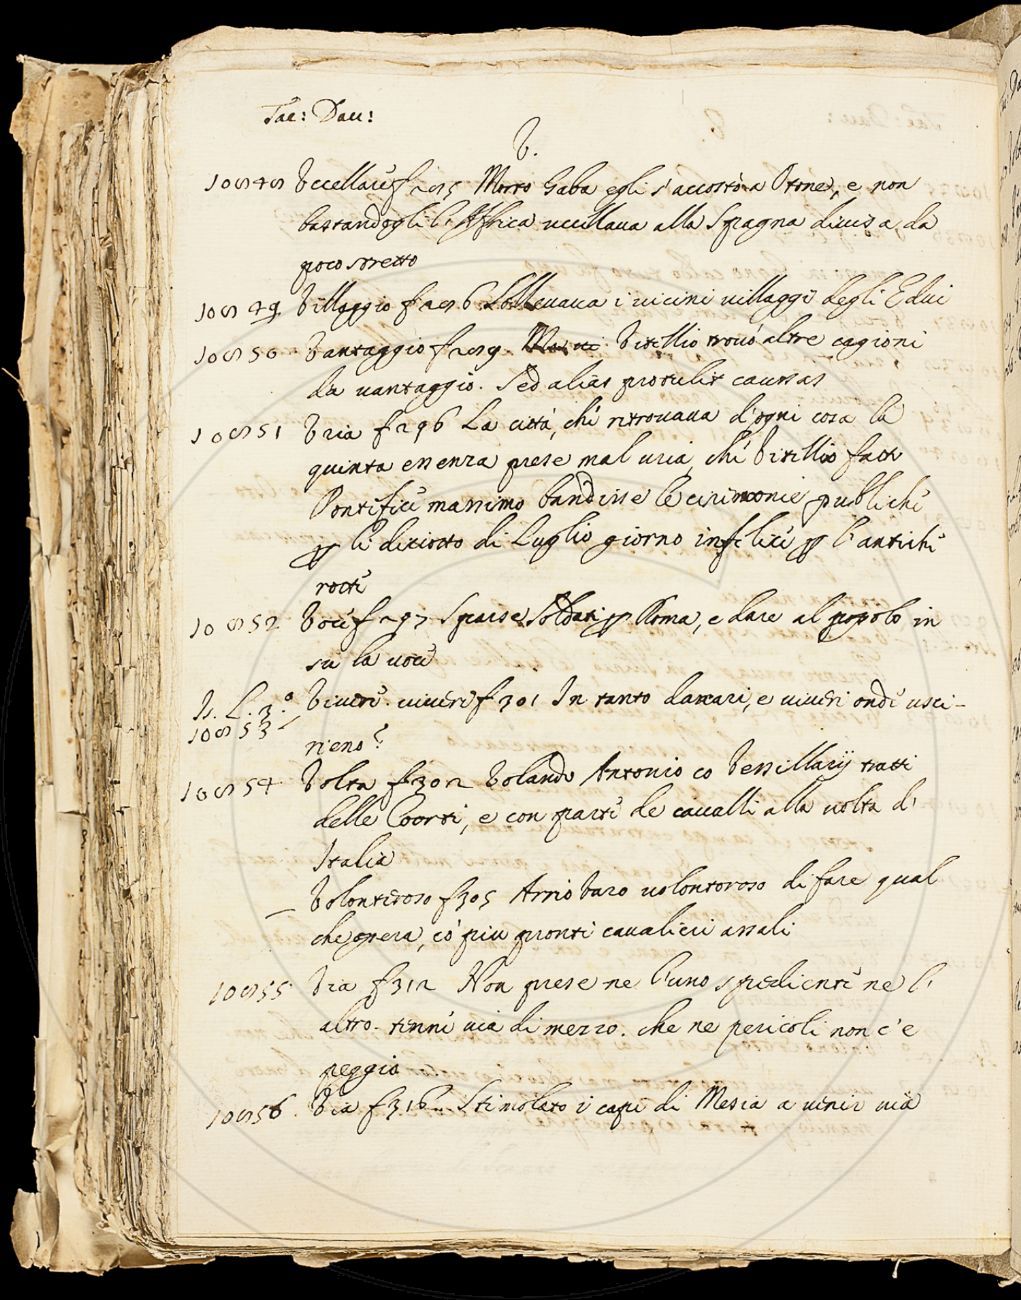 Tac: Dau:
V.
108848 Vccellare f 295 Morto Gaba egli s'accostò a Otone, e non
bastandogli l'Affrica uccellaua alla Spagna diuisa da
poco stretto
108849 Villaggio f 296 Solleuaua i uicini uillaggi degli Edui
108850 Vantaggio f 29 Vitellio trouò altre cagioni
da uantaggio. Sed alias protulit caussas
108851 Vria f 296 La città, che ritrouaua d'ogni cosa la
quinta essenza prese mal uria, che Vitellio fatto
Pontefice massimo bandisse le cirimonie publiche
p li diciotto di Luglio giorno infelice p l'antiche
rotte
108852 Voce f 297 Sparse Soldati p Roma, e dare al popolo in
su la uoce
Is. L. 3.o
108853 Viuere. uiueri f 301 In tanto danari, e uiueri onde usci-
rieno?
108854 Volta f 302 Volando Antonio co Vessillarij tratti
delle Coorti, e con parte de caualli alla uolta d'
Italia
— Volonteroso f 305 Arrio Varo uolontoroso di fare qual
che opera, co' piu pronti caualieri assali
108855 Via f 312 Non prese ne l'uno spediente ne l'
altro. tenne uia di mezzo. che ne pericoli non c'è
peggio
108856 Via f 316 Stimolato i capi di Mesia a uenir uia